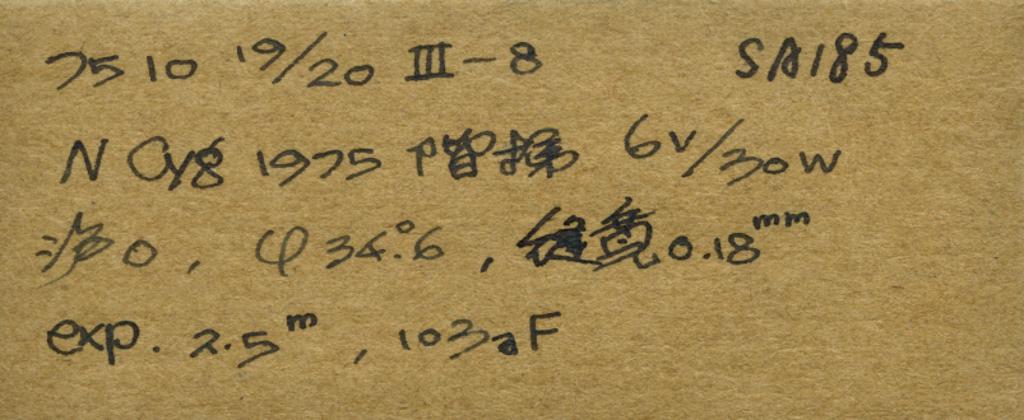 7510 19/20 III-8 SA185
N Cyg 1975 阶梯 6V/30W
滤0, φ34°.6, 缝宽0.18mm
exp. 2.5m, 103aF